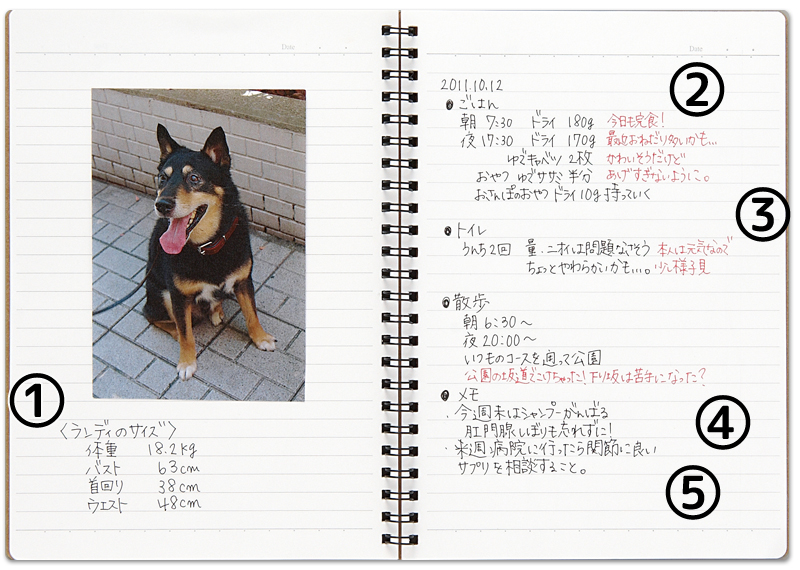 Date
①
〈ランディのサイズ〉
体重 18.2kg
バスト 63cm
首回り 38cm
ウエスト 48cm
Date
②
2011.10.12
●ごはん
朝 7:30 ドライ 180g 今日も完食!
夜 17:30 ドライ 170g 最近おねだり多いかも…
ゆでキャベツ 2枚 かわいそうだけど
おやつ ゆでササミ 半分 あげすぎないように。
おさんぽのおやつ ドライ10g持っていく
③
●トイレ
うんち2回 量・ニオイは問題なさそう 本人は元気なので
ちょっとやわらかいかも…。少し様子見
●散歩
朝 6:30〜
夜 20:00〜
いつものコースを通って公園
公園の坂道でこけちゃった!下り坂は苦手になった?
●メモ
④
・今週末はシャンプーがんばる
肛門腺しぼりも忘れずに!
・来週病院に行ったら関節に良い
サプリを相談すること。
⑤